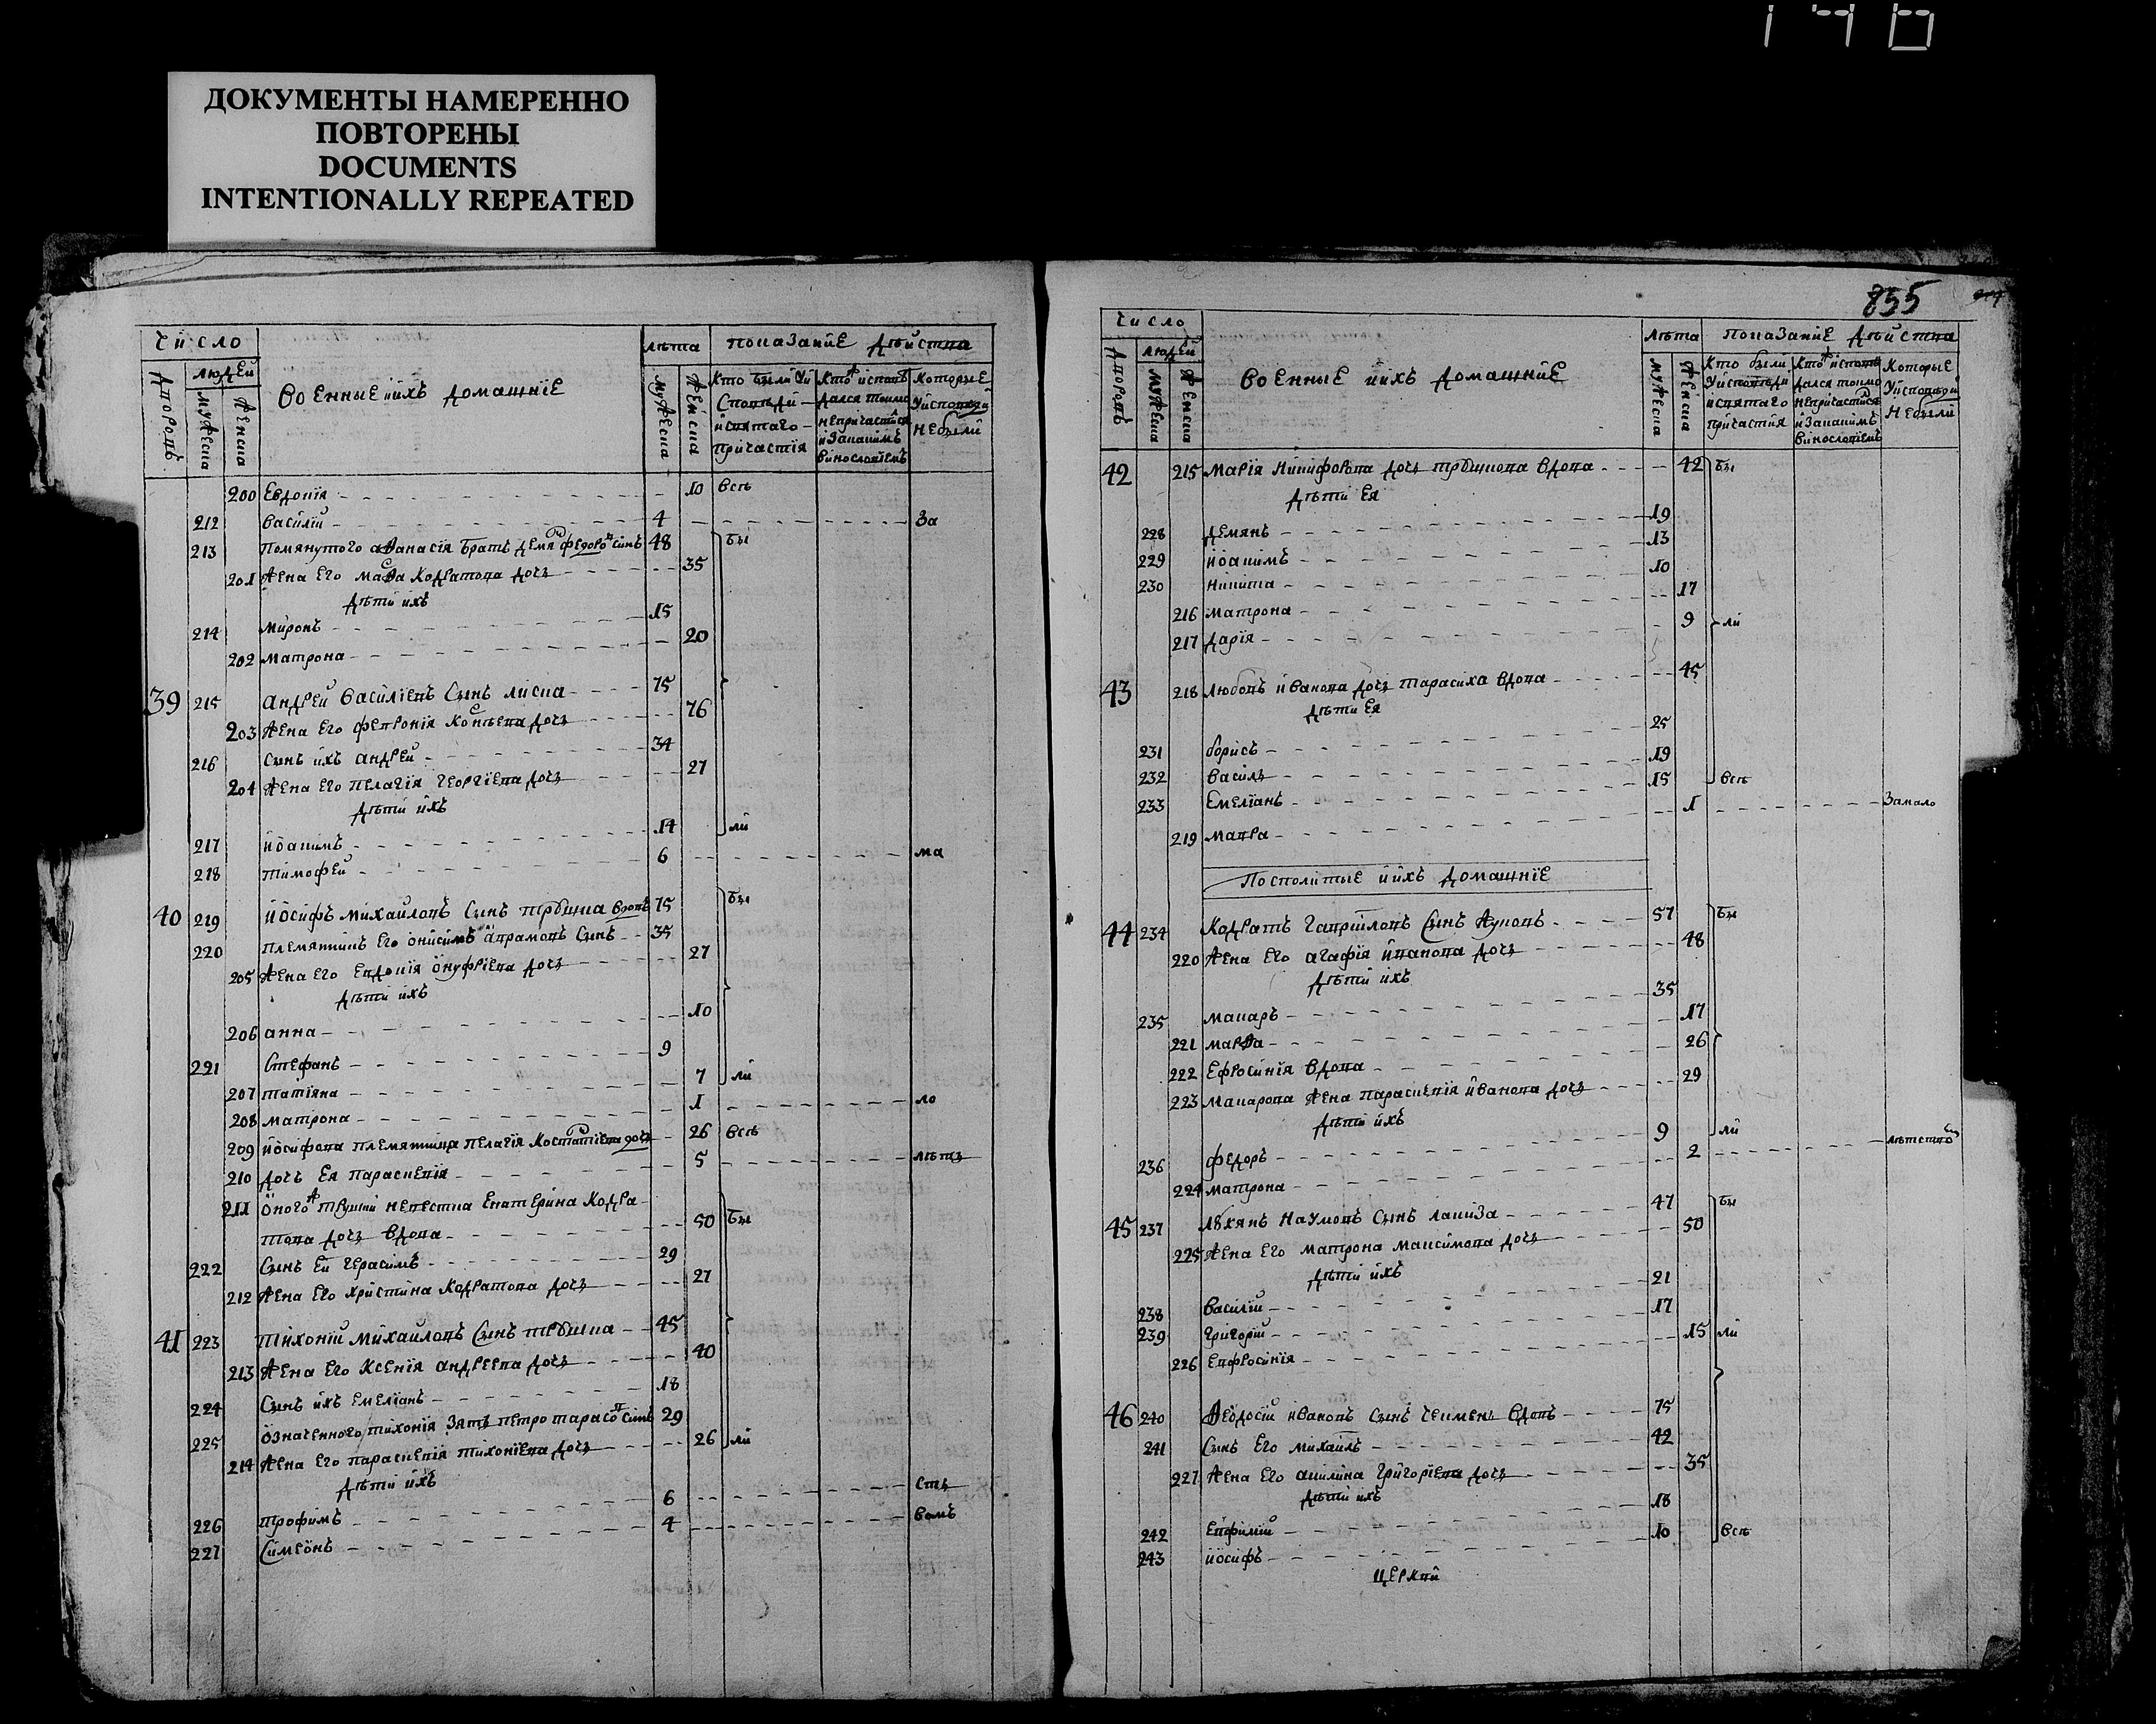 146
ДОКУМЕНТЫ НАМЕРЕННО
ПОВТОРЕНЫ
DOCUMENTS
INTENTIONALLY REPEATED
число
людей
дворовъ
мужеска
женска
военные и ихъ домашнїе
лѣта
мужеска
женска
показанїе дѣйства
Кто были у исповѣди и святаго причастїя
Кто исповѣдался токмо не причастился и за какимъ винословїемъ
Которые у исповѣди не были
200 Евдокїя 10 всѣ
212 василїй 4 За
213 помянутого афанасїя братъ демѧ федоровъ синъ 48 бы
201 жена его марфа Кодратова дочь 35
дѣти ихъ
214 миронъ 15
202 матрона 20
39 215 андрей василїевъ сынъ лиска 75
203 жена его февронїя дочь 76
216 сынъ ихъ андрей 34
204 жена его пелагїя георгїева дочь 27
дѣти ихъ
217 иоакимъ 14 ли
218 тимофей 6 ма
40 219 иосифъ михайловъ сынъ вдовъ 75 бы
220 племянникъ его онисимъ аврамовъ сынъ 35
205 жена его евдокїя онуфрїева дочь 27
дѣти ихъ
206 анна 10
221 Стефанъ 9
207 татїяна 7 ли
208 матрона 1 ло
209 иосифова племянница пелагїя дочь 26 всѣ
210 дочь ея параскевїя 5 лѣтъ
211 оного ж невестка Екатерина Кодра-
това дочь вдова 50 бы
222 сынъ ей герасимъ 29
212 жена его христина Кодратова дочь 27
41 223 тихонїй михайловъ сынъ 45
213 жена его Ксенїя андреева дочь 40
224 сынъ ихъ емелїанъ 18
225 означенного тихонїя зять петро тарасовъ синъ 29
214 жена его параскевїя тихонїева дочь 26 ли
дѣти ихъ
226 трофимъ 6 сть
227 Симеонъ 4 вомъ
855
число
людей
дворовъ
мужеска
женска
военные и ихъ домашнїе
лѣта
мужеска
женска
показанїе дѣйства
Кто были у исповѣди и святаго причастїя
Кто исповѣдался токмо не причастился и за какимъ винословїемъ
Которые у исповѣди не были
42 215 марїя никифорова дочь вдова 42 бы
дѣти ея
228 демянъ 19
229 иоакимъ 13
230 никита 10
216 матрона 17
217 дарїя 9 ли
43 218 любовъ иванова дочь тарасиха вдова 45
дѣти ея
231 борисъ 25
232 василь 19
233 Емелїанъ 15 всѣ
219 мавра 1 Замало
Посполитые и ихъ домашнїе
44 234 Кодратъ гаврїиловъ сынъ 57 бы
220 жена его агафїя иванова дочь 48
дѣти ихъ
235 макаръ 35
221 марфа 17
222 Ефросинїя вдова 26
223 макарова жена параскевїя иванова дочь 29
дѣти ихъ
236 федоръ 9 ли
224 матрона 2 лѣтство
45 237 лукянъ наумовъ сынъ 47 бы
225 жена его матрона максимова дочь 50
дѣти ихъ
238 василїй 21
239 григорїй 17
226 Евфросинїя 15 ли
46 240 феодосїй ивановъ сынъ вдовъ 75
241 сынъ его михаилъ 42
227 жена его акилина григорїева дочь 35
дѣти ихъ
242 Евфимїй 18
243 иосифъ 10 всѣ
церкви